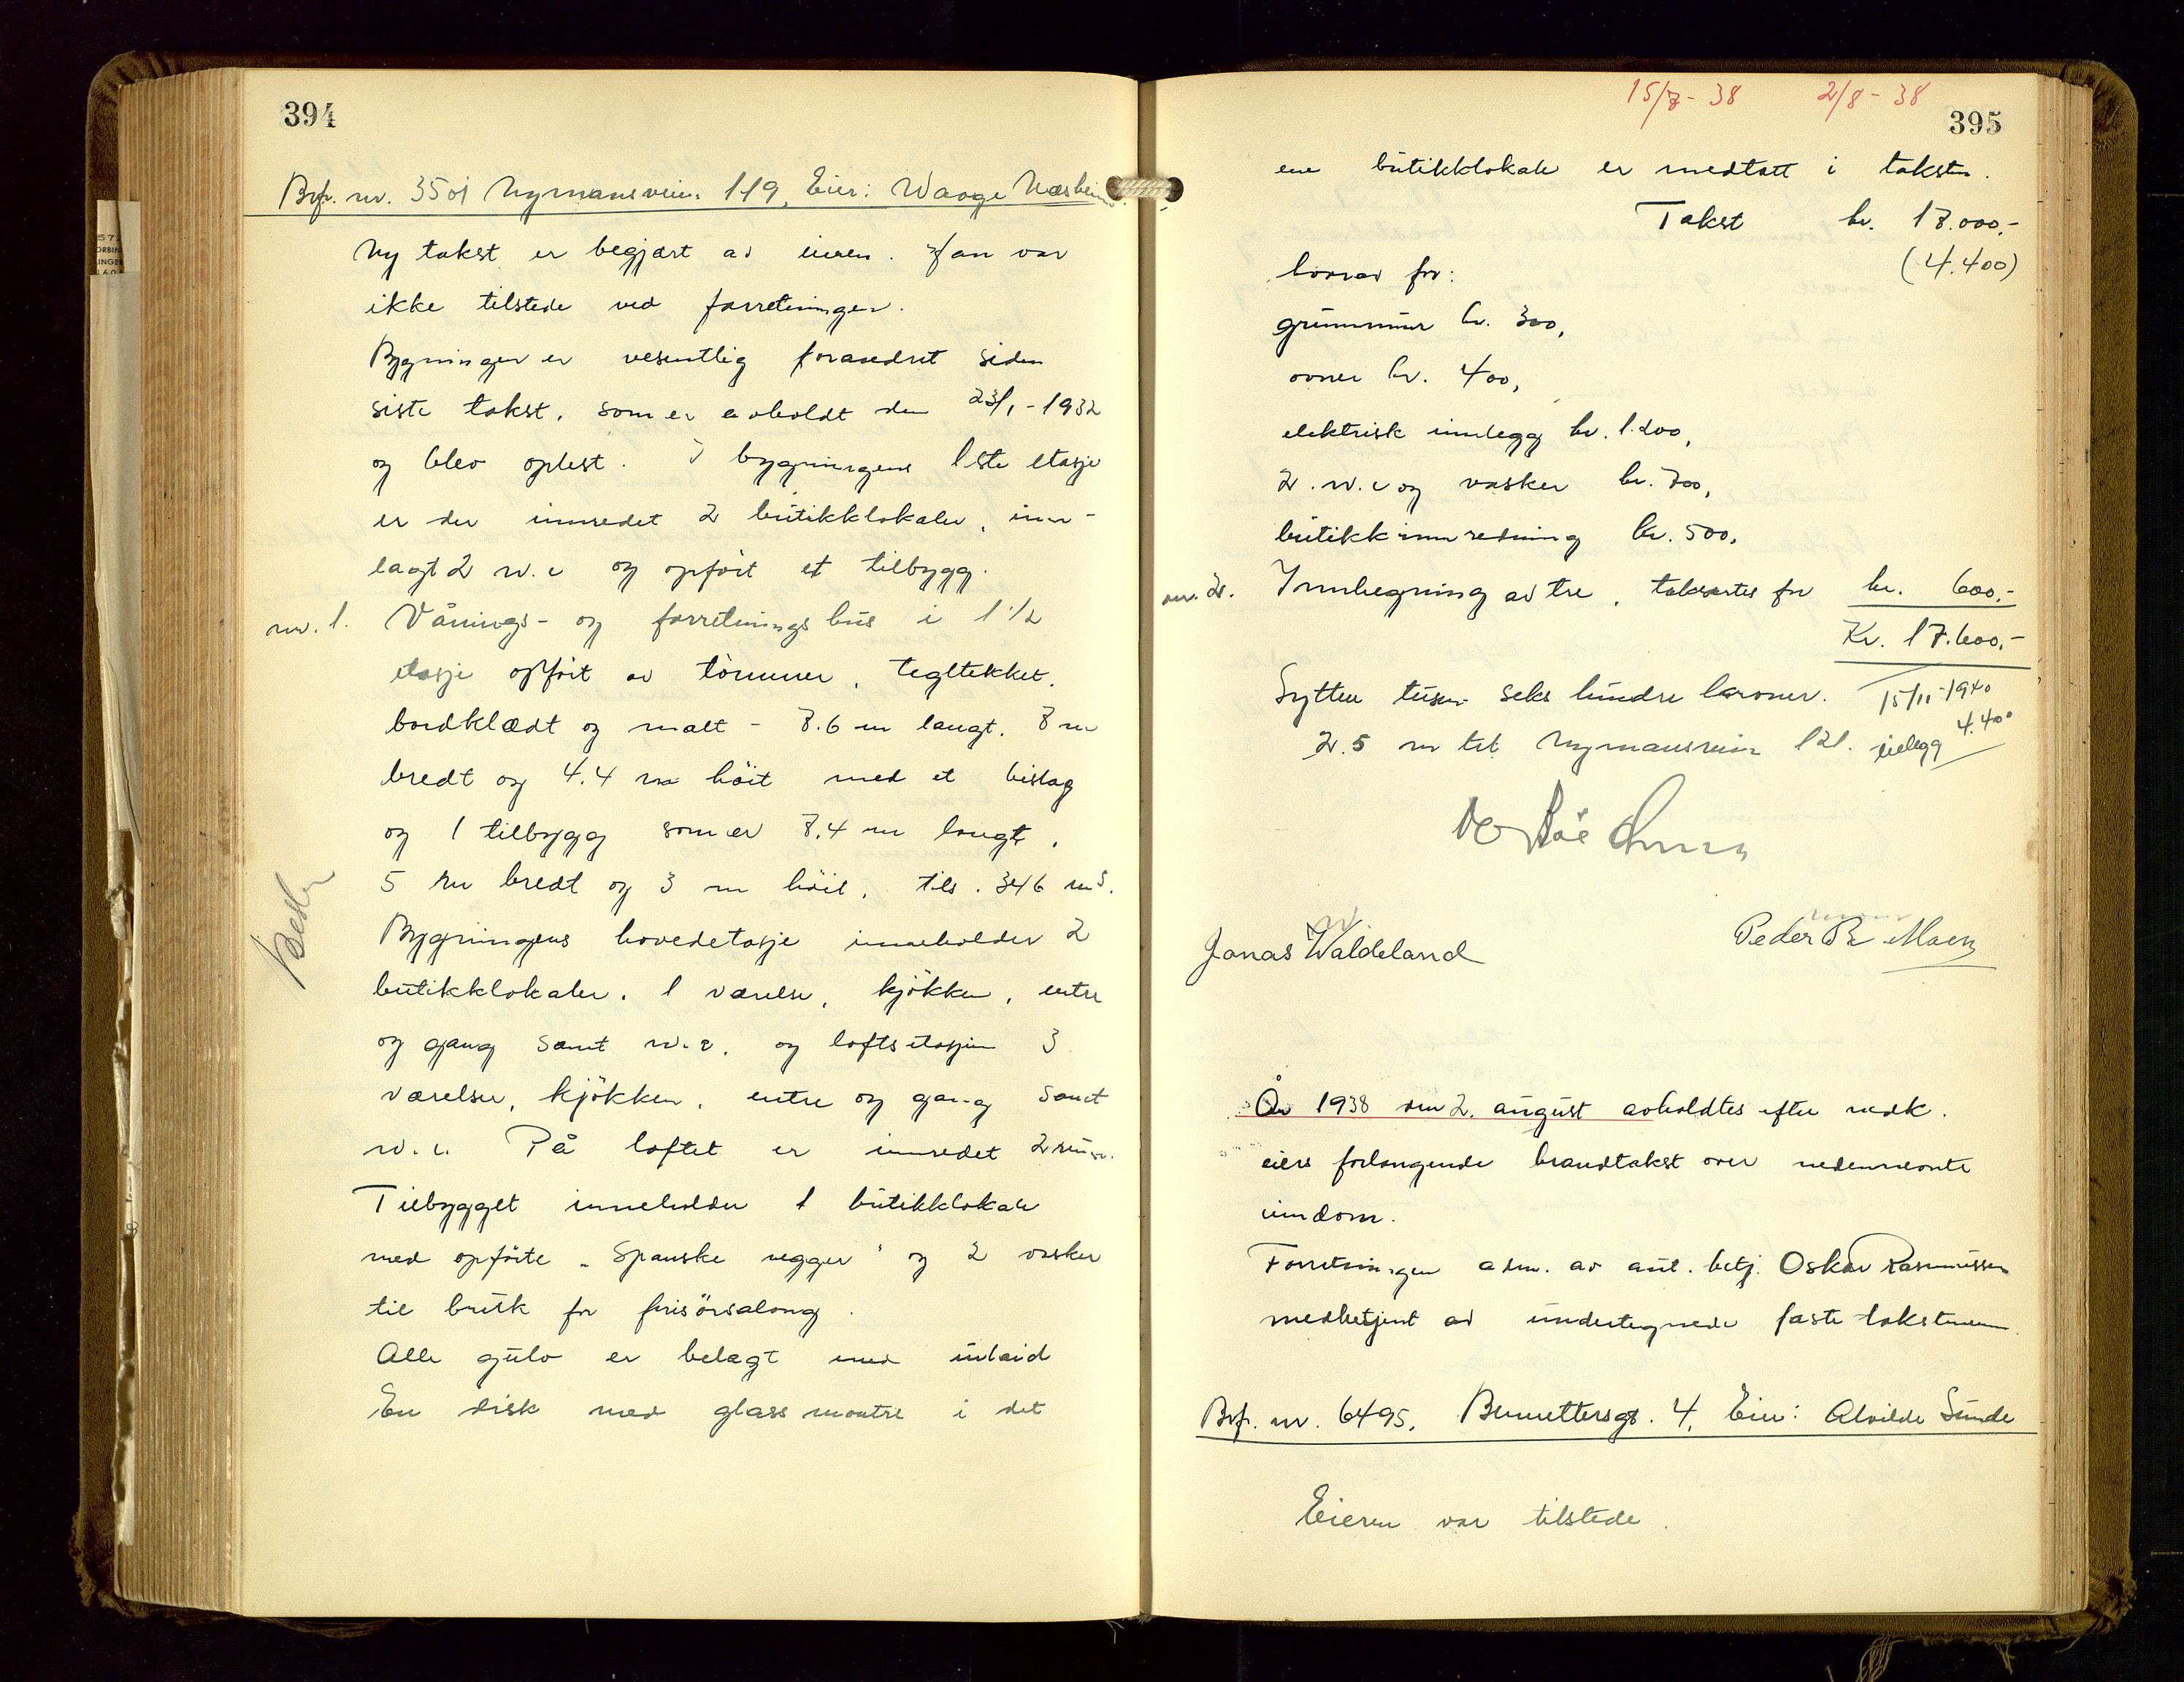 394
Brf. nr. 3501 Nymansveien 119, Eier: Waage Næsheim
Ny takst er begjært av eieren. Han var
ikke tilstede ved forretningen.
Bygningen er vesentlig forandret siden
siste takst, som er avholdt den 23/1-1932
og blev oplest. I bygningens 1ste etasje
er der innredet 2 butikklokaler, inn-
lagt 2 w.c og opført et tilbygg.
nr. 1. Vånings- og forretningshus i 1 1/2
etasje opført av tømmer, tegltekket,
bordklædt og malt - 8.6 m langt, 8 m
bredt og 4.4 m høit med et bislag
og 1 tilbygg som er 7.4 m langt,
5 m bredt og 3 m høit, tils. 346 m3.
Bygningens hovedetasje inneholder 2
butikklokaler, 1 værelse, kjøkken, entre
og gang samt w.c. og loftsetasjen 3
værelser, kjøkken, entre og gang samt
w.c. På loftet er innredet 2 rum.
Tilbygget inneholder 1 butikklokale
med opførte "Spanske vegger" og 2 vasker
til bruk for frisørsalong.
Alle gulv er belagt med inlaid
En disk med glassmontre i det
15/7-38 2/8-38
395
ene butikklokale er medtatt i taksten.
Takst kr. 17.000.-
(4.400)
hvorav for:
grunnmur kr. 300,
ovner kr. 400,
elektrisk innlegg kr. 1.200,
2 w.c og vasker kr. 700,
butikkinnredning kr. 500,
nr. 2. Innhegning av tre, takseres for kr. 600.-
Kr. 17.600.-
Sytten tusen seks hundre kroner. 15/11-1940
2.5 m til Nymansveien 121. tillegg 4.400
Jonas Waldeland
Peder Moen
År 1938 den 2. august avholdtes efter vedk.
eiers forlangende brandtakst over nedennevnte
eiendom.
Forretningen adm. av aut. betj. Oskar Rasmussen
medbetjent av undertegnede faste takstmenn.
Brf. nr. 6495, Bennettersgt. 4, Eier: Alvilde Sunde
Eieren var tilstede.